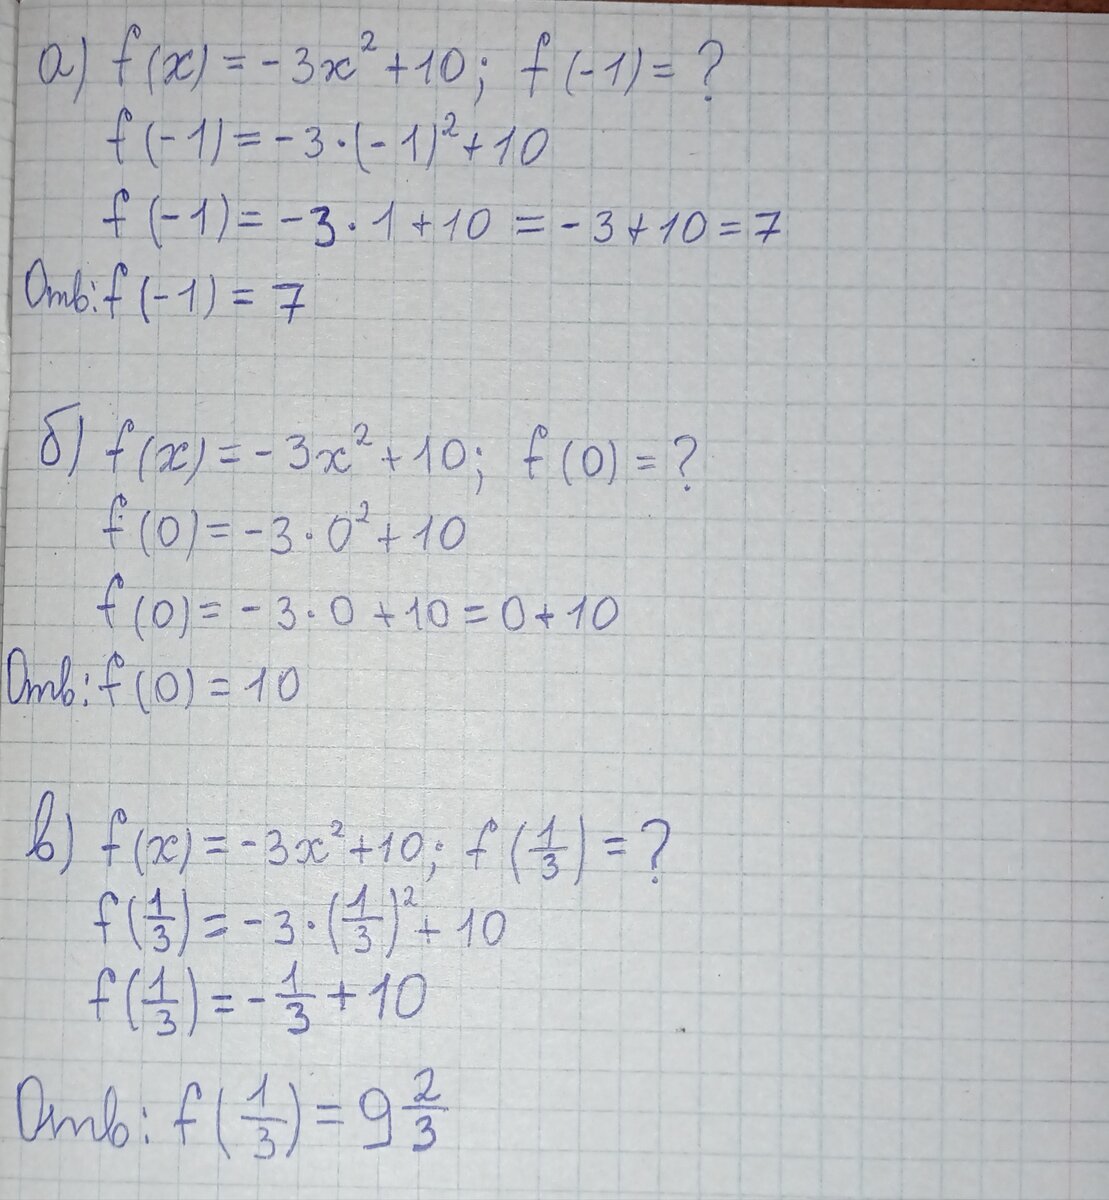 а) f(x) = -3x² + 10; f(-1) = ?
f(-1) = -3·(-1)² + 10
f(-1) = -3·1 + 10 = -3 + 10 = 7
Отв: f(-1) = 7
б) f(x) = -3x² + 10; f(0) = ?
f(0) = -3·0² + 10
f(0) = -3·0 + 10 = 0 + 10
Отв: f(0) = 10
в) f(x) = -3x² + 10; f(1/3) = ?
f(1/3) = -3·(1/3)² + 10
f(1/3) = -1/3 + 10
Отв: f(1/3) = 9 2/3